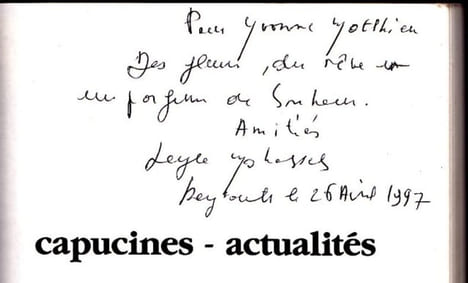 Pour Yvonne Motthieu
Des fleurs, du rêve
un parfum de bonheur.
Amitiés
Leyla
Beyrouth le 26 Avril 1997
capucines - actualités